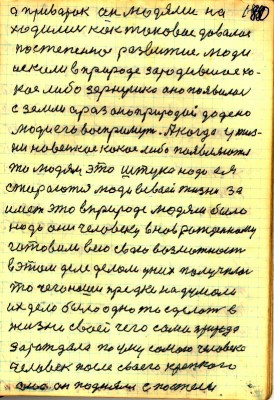 а приварок он людями на
ходимих как таковые давался
постепенно развитие люди
искали в природе зародившиеся ко-
кое либо зернушко оно появилос
с земли а раз она природой додено
люди его восприимут. А когда у жиз-
ни новенкое какое либо появляится
то людям это штуко надо ея
стараются люди в своей жизни за
имет это в природе людям было
надо они человеку вновь рожденному
готовили всю свою возможность
в этом деле делом у них получилос
то чего наши предки надумали
их дело было одно то сделат в
жизни своей чего сами
зараждала по уму самого человека
человек после своего крепкого
сна он подняли с постели